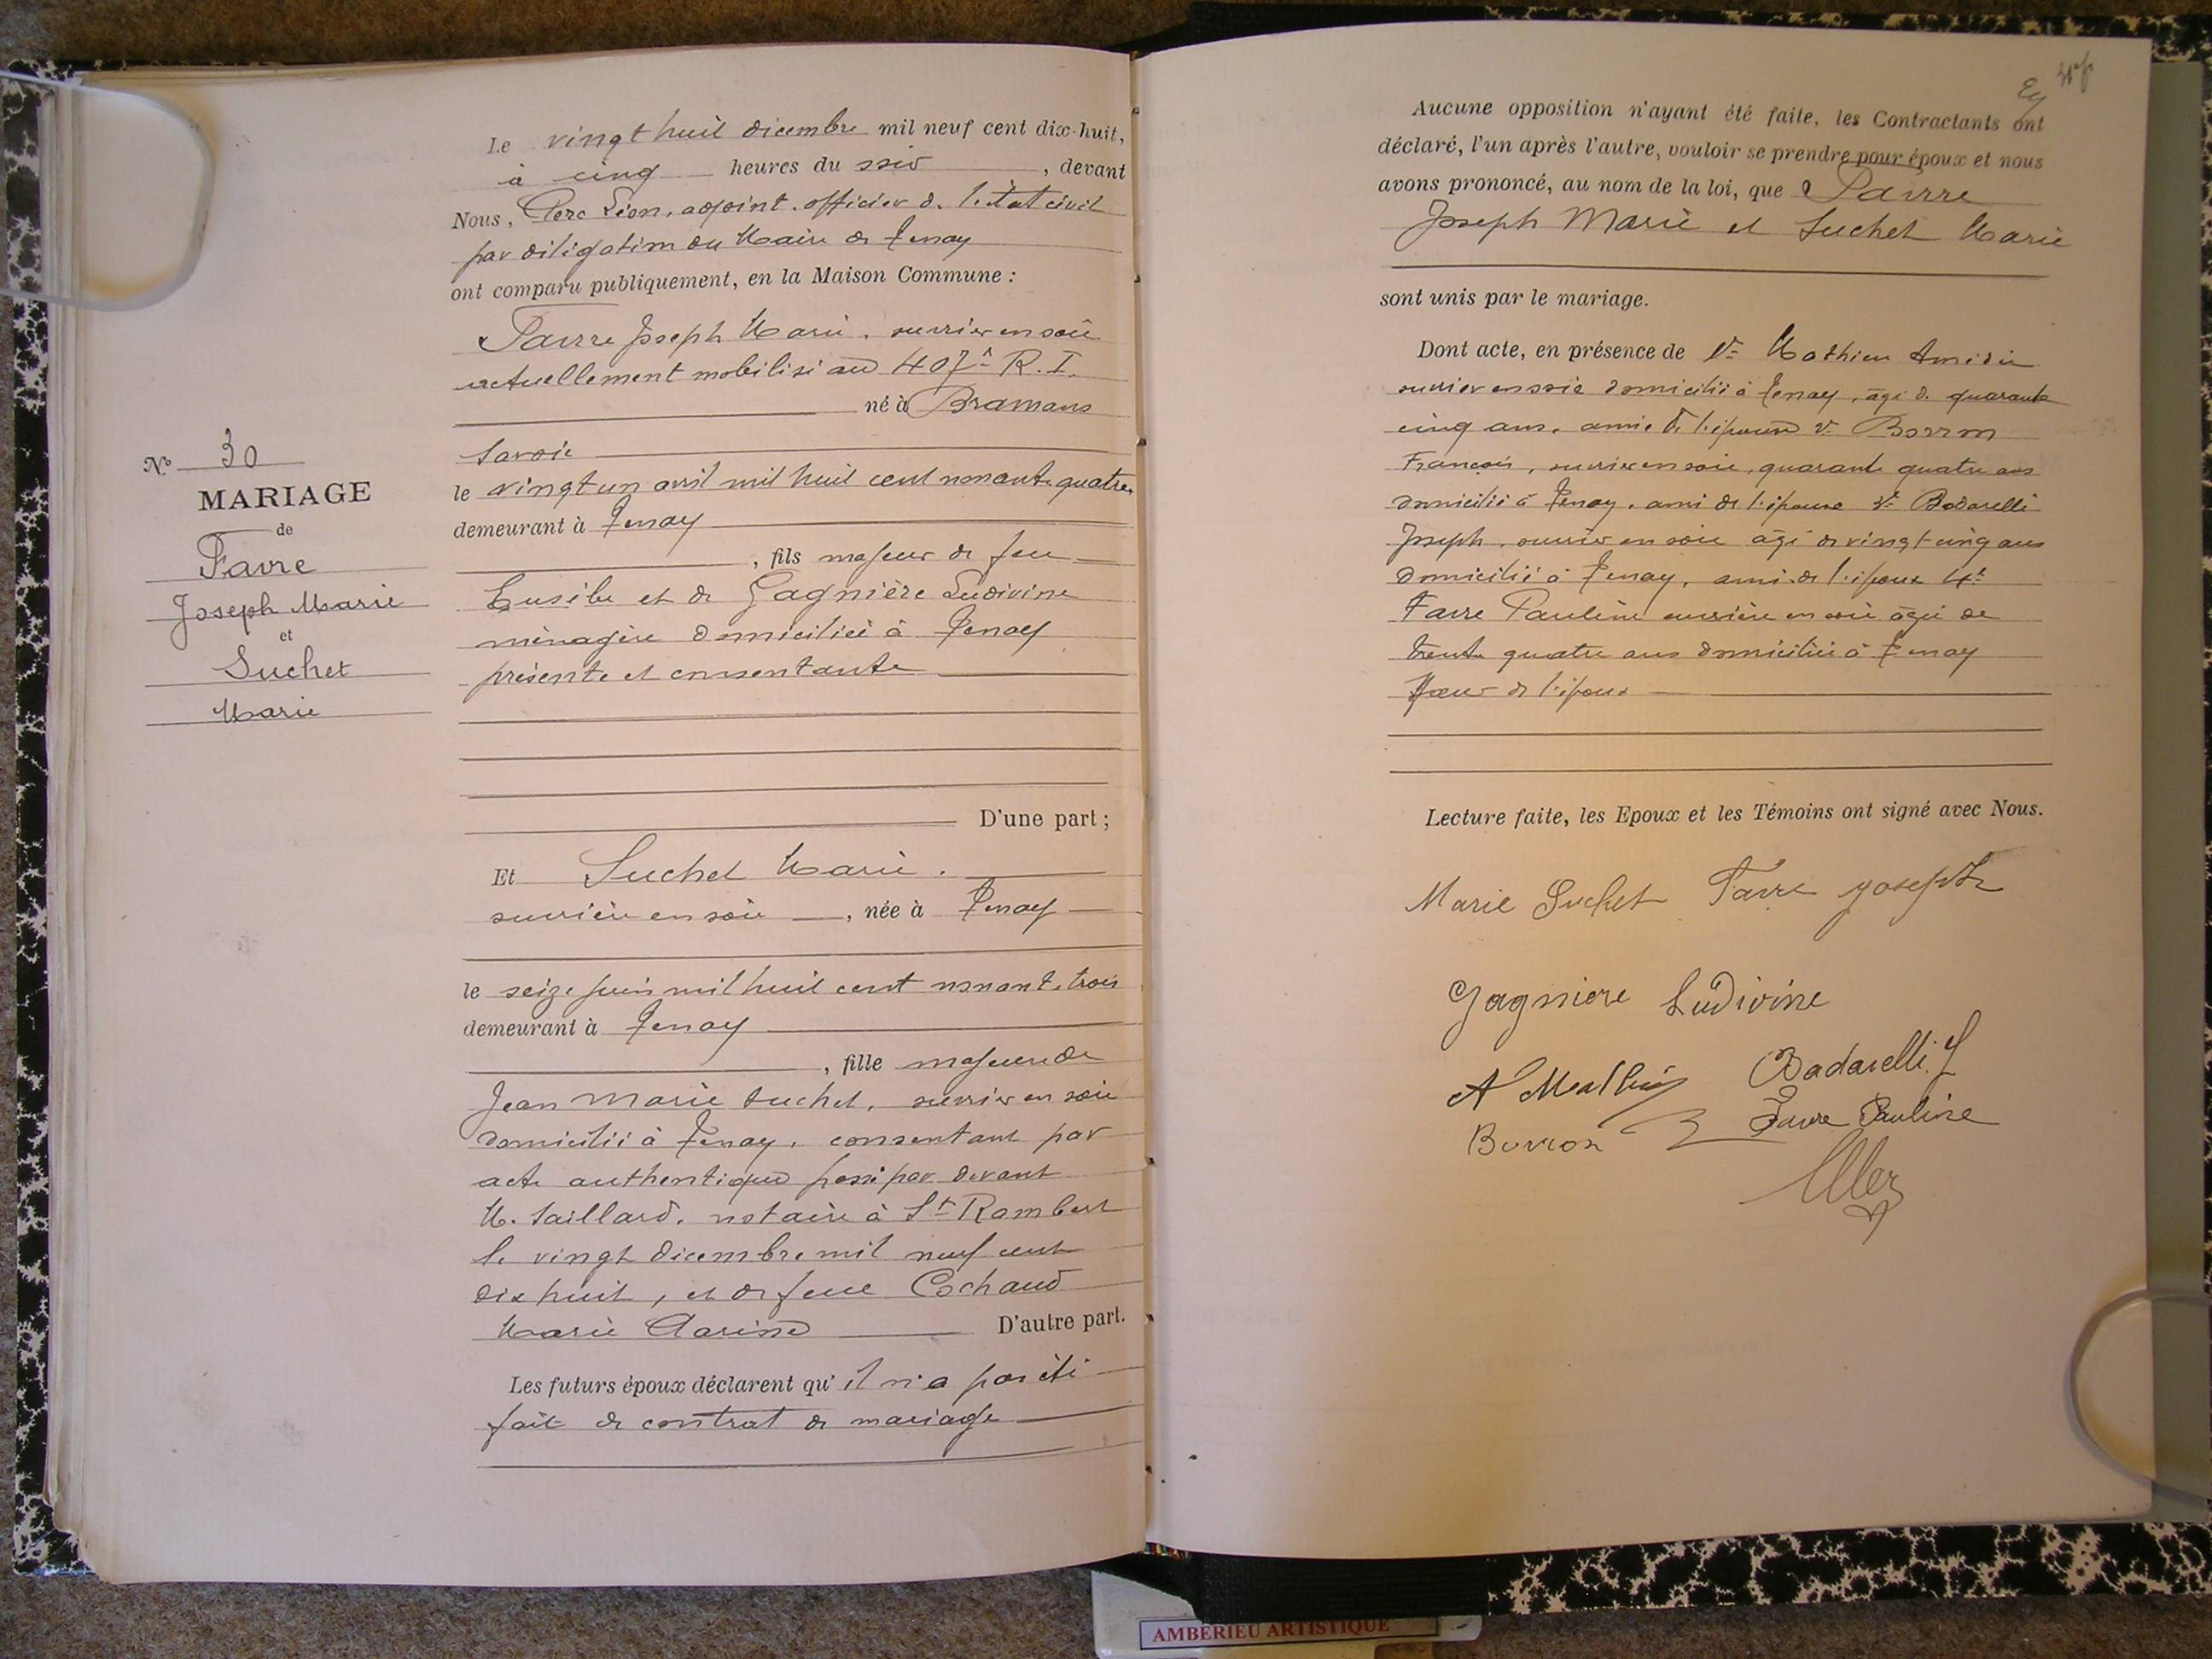 N° 30
MARIAGE
de
Favre
Joseph Marie
et
Suchet
Marie
Le vingt huit décembre mil neuf cent dix-huit,
à cinq heures du soir, devant
Nous, Clerc Léon, adjoint. officier de l'état civil
par délégation du Maire de Tenay
ont comparu publiquement, en la Maison Commune :
Favre Joseph Marie. ouvrier en soie
actuellement mobilisé au 407e R. I.
né à Bramans
Savoie
le vingt un avril mil huit cent nonante quatre
demeurant à Tenay
, fils majeur de feu
Eusèbe et de Gagnière Ludivine
ménagère domiciliée à Tenay
présente et consentante
D'une part ;
Et Suchet Marie.
ouvrière en soie, née à Tenay
le seize juin mil huit cent nonante trois
demeurant à Tenay
, fille majeure de
Jean Marie Suchet, ouvrier en soie
domicilié à Tenay, consentant par
acte authentique passé par devant
M. Saillard, notaire à St Rambert
le vingt décembre mil neuf cent
dix huit, et de feue Cochaud
Marie Clarisse D'autre part.
Les futurs époux déclarent qu' il n'a pas été
fait de contrat de mariage
Aucune opposition n'ayant été faite, les Contractants ont
déclaré, l'un après l'autre, vouloir se prendre pour époux et nous
avons prononcé, au nom de la loi, que Favre
Joseph Marie et Suchet Marie
sont unis par le mariage.
Dont acte, en présence de Mathieu Amédée
ouvrier en soie domicilié à Tenay, âgé de quarante
cinq ans, ami de l'épouse Borron
François, ouvrier en soie, quarante quatre ans
domicilié à Tenay, ami de l'épouse Badarelli
Joseph, ouvrier en soie âgé de vingt-cinq ans
domicilié à Tenay, ami de l'époux 4e
Favre Pauline ouvrière en soie âgée de
trente quatre ans domiciliée à Tenay
sœur de l'époux
Lecture faite, les Epoux et les Témoins ont signé avec Nous.
Marie Suchet Favre joseph
Gagniere Ludivine
A Mathieu Badarelli J
Borron Favre Pauline
AMBERIEU ARTISTIQUE